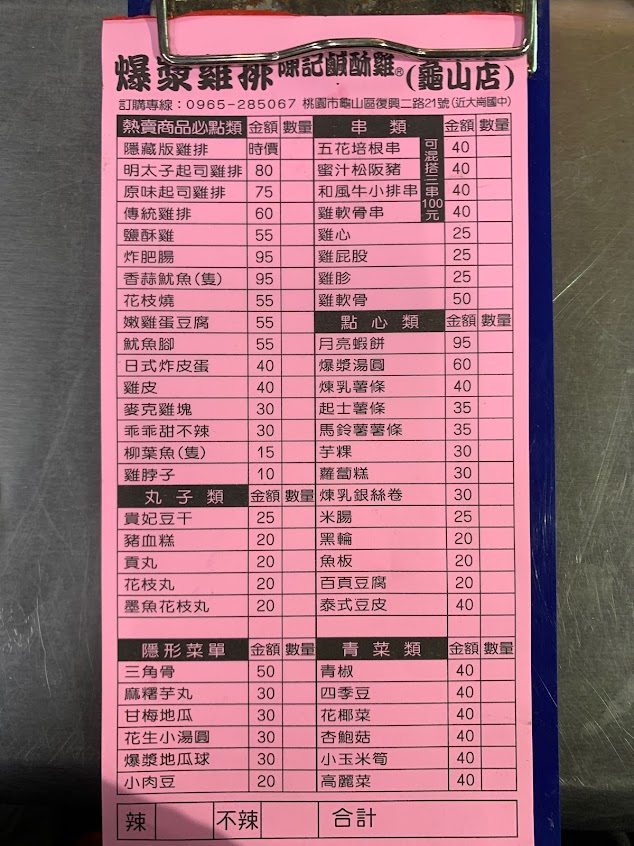 爆漿雞排 陳記鹹酥雞® (龜山店)
訂購專線：0965-285067 桃園市龜山區復興二路21號(近大崗國中)
熱賣商品必點類 金額 數量
隱藏版雞排 時價
明太子起司雞排 80
原味起司雞排 75
傳統雞排 60
鹽酥雞 55
炸肥腸 95
香蒜魷魚(隻) 95
花枝燒 55
嫩雞蛋豆腐 55
魷魚腳 55
日式炸皮蛋 40
雞皮 40
麥克雞塊 30
乖乖甜不辣 30
柳葉魚(隻) 15
雞脖子 10
丸子類 金額 數量
貴妃豆干 25
豬血糕 20
貢丸 20
花枝丸 20
墨魚花枝丸 20
隱形菜單 金額 數量
三角骨 50
麻糬芋丸 30
甘梅地瓜 30
花生小湯圓 30
爆漿地瓜球 30
小肉豆 20
串類 金額 數量
五花培根串 40
蜜汁松阪豬 40
和風牛小排串 40
雞軟骨串 40
可混搭三串100元
雞心 25
雞屁股 25
雞胗 25
雞軟骨 50
點心類 金額 數量
月亮蝦餅 95
爆漿湯圓 60
煉乳薯條 40
起士薯條 35
馬鈴薯薯條 35
芋粿 30
蘿蔔糕 30
煉乳銀絲卷 30
米腸 25
黑輪 20
魚板 20
百頁豆腐 20
泰式豆皮 40
青菜類 金額 數量
青椒 40
四季豆 40
花椰菜 40
杏鮑菇 40
小玉米筍 40
高麗菜 40
辣 不辣 合計